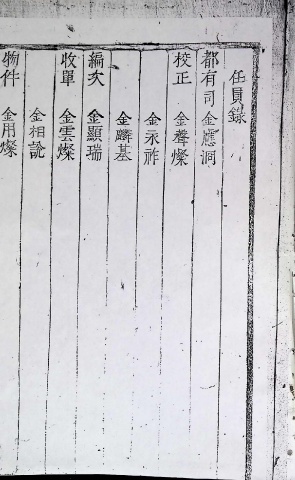 任員錄
都有司 金應洞
校正 金聲燦
金永祚
金麟基
編次 金顯瑞
收單 金雲燦
金相說
物件 金用燦